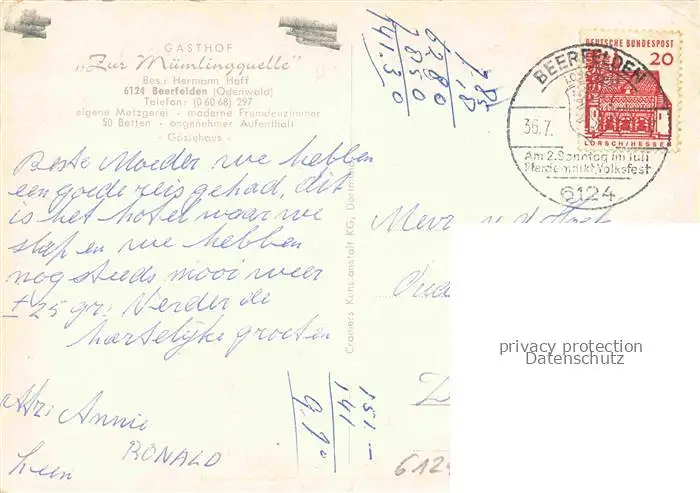 GASTHOF
„Zur Mümlingquelle"
Bes.: Hermann Hoff
6124 Beerfelden (Odenwald)
Telefon: (0 60 68) 297
eigene Metzgerei - moderne Fremdenzimmer
50 Betten - angenehmer Aufenthalt
- Gästehaus -
Beste Moeder we hebben
een goede reis gehad, dit
is het hotel waar we
slapen we hebben
nog steeds mooi weer
± 25 gr. Verder de
hartelijke groeten
Annie
RONALD
Cramers Kunstanstalt KG, Dortmund
DEUTSCHE BUNDESPOST
20
LORSCH/HESSEN
BEERFELDEN
Am 2. Sonntag im Juli
Pferdemarkt, Volksfest
6124
Mevr. v.d.
Oude
151 -
141
612
privacy protection
Datenschutz